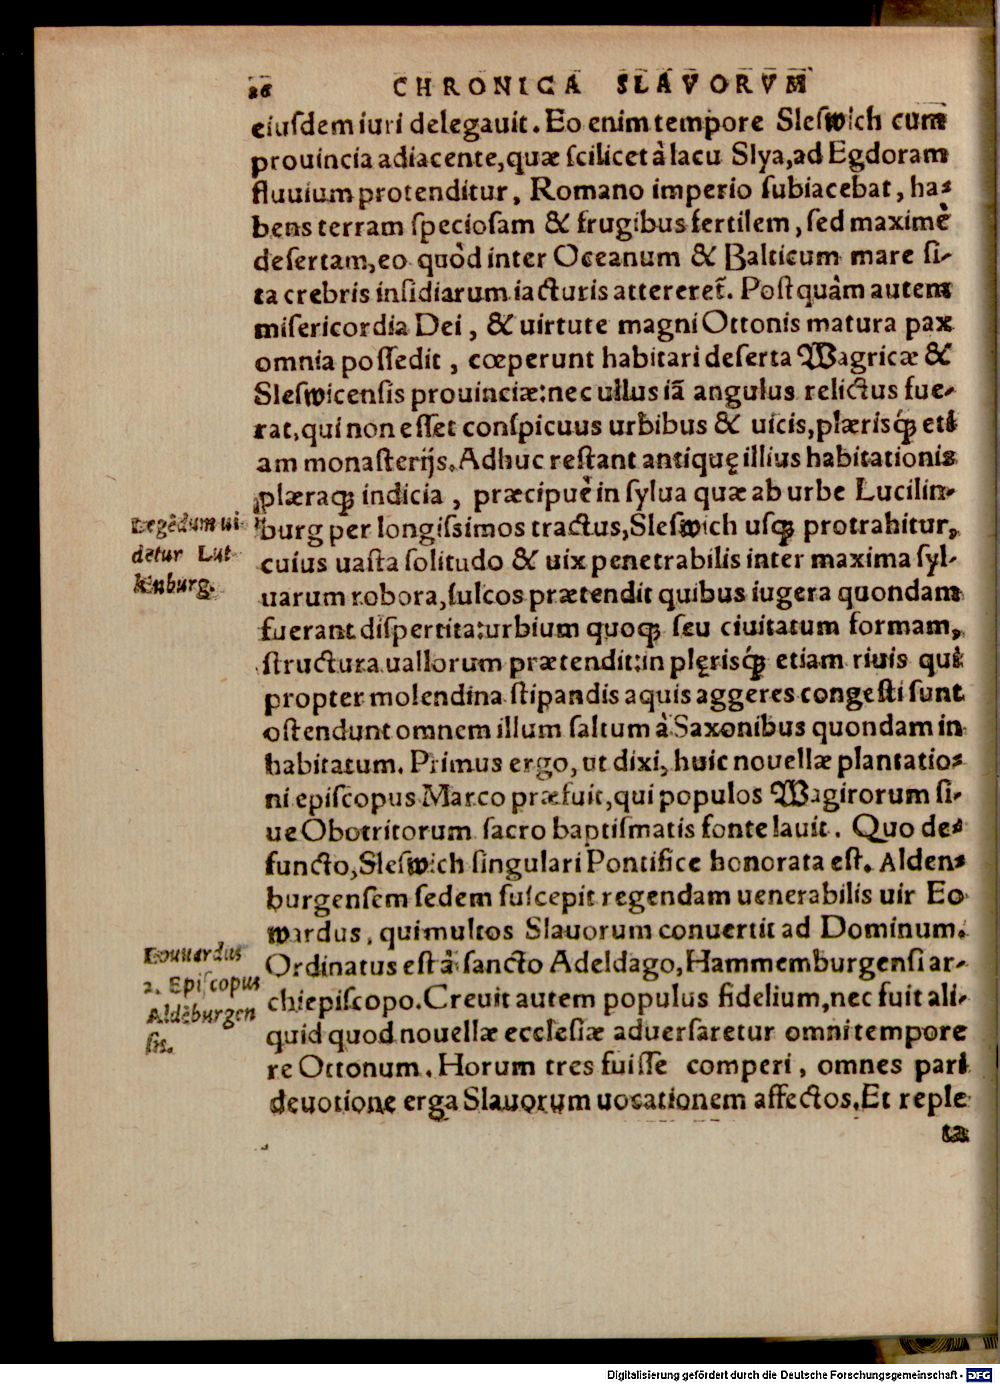 26 CHRONICA SLAVORVM
eiuſdem iuri delegauit. Eo enim tempore Sleſwich cum
prouincia adiacente, quæ ſcilicet à lacu Slya, ad Egdoram
fluuium protenditur, Romano imperio ſubiacebat, ha⸗
bens terram ſpecioſam & frugibus fertilem, ſed maximè
deſertam, eo quòd inter Oceanum & Balticum mare ſi-
ta crebris inſidiarum iacturis attereret̃. Poſtquàm autem
miſericordia Dei, & uirtute magni Ottonis matura pax
omnia poſſedit, cœperunt habitari deſerta Wagricæ &
Sleſwicenſis prouinciæ: nec ullus iã angulus relictus fue-
rat, qui non eſſet conſpicuus urbibus & uicis, plæriſq́ꝫ eti
am monaſterijs. Adhuc reſtant antiquę illius habitationis
plæraqꝫ indicia, præcipuè in ſylua quæ ab urbe Lucilin-
Legẽdum ui
burg per longiſsimos tractus, Sleſwich uſqꝫ protrahitur,
detur Lut
cuius uaſta ſolitudo & uix penetrabilis inter maxima ſyl-
kẽnburg.
uarum robora, ſulcos prætendit quibus iugera quondam
fuerant diſpertita: urbium quoqꝫ ſeu ciuitatum formam,
ſtructura uallorum prætendit: in plęriſq́ꝫ etiam riuis qui
propter molendina ſtipandis aquis aggeres congeſti ſunt
oſtendunt omnem illum ſaltum à Saxonibus quondam in
habitatum. Primus ergo, ut dixi, huic nouellæ plantatio⸗
ni epiſcopus Marco præfuit, qui populos Wagirorum ſi-
ue Obotritorum ſacro baptiſmatis fonte lauit. Quo de⸗
functo, Sleſwich ſingulari Pontifice honorata eſt. Alden⸗
burgenſem ſedem ſuſcepit regendam uenerabilis uir Eo
wardus, qui multos Slauorum conuertit ad Dominum.
Eouuardus
Ordinatus eſt à ſancto Adeldago, Hammemburgenſi ar-
2. Epiſcopus
chiepiſcopo. Creuit autem populus fidelium, nec fuit ali-
Aldẽburgen
quid quod nouellæ eccleſiæ aduerſaretur omni tempore
ſis.
re Ottonum. Horum tres fuiſſe comperi, omnes pari
deuotione erga Slauorum uocationem affectos. Et reple
ta
Digitalisierung gefördert durch die Deutsche Forschungsgemeinschaft - DFG